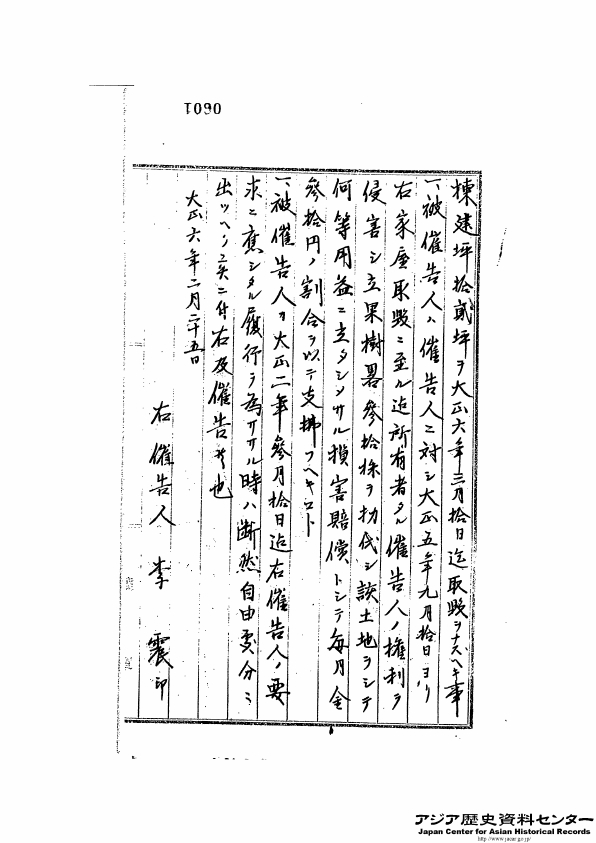 0601
棟建坪拾貳坪ヲ大正六年三月拾日迄取毀ヲナスヘキ事
一、被催告人ハ催告人ニ対シ大正五年九月拾日ヨリ
右家屋取毀ニ至ル迄所有者タル催告人ノ権利ヲ
侵害シ立果樹畧參拾株ヲ扐伐シ該土地ヲシテ
何等用益ニ立タシメサル損害賠償トシテ毎月金
參拾円ノ割合ヲ以テ支拂フヘキコト
一、被催告人ヲ大正二年參月拾日迄右催告人ノ要
求ニ應シタル履行ヲ為サヽル時ハ断然自由処分ニ
出ツヘシ 付右及催告候也
大正六年二月二十五日
右催告人 李 震 印
アジア歴史資料センター
Japan Center for Asian Historical Records
http://www.jacar.go.jp/